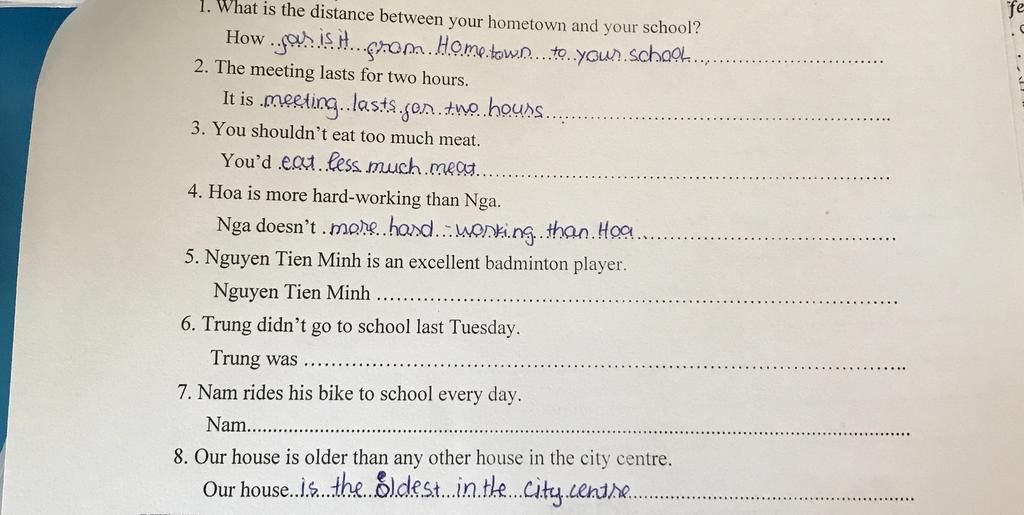 1. What is the distance between your hometown and your school?
How far is it from Hometown to your school
2. The meeting lasts for two hours.
It is meeting lasts for two hours
3. You shouldn't eat too much meat.
You'd eat less much meat
4. Hoa is more hard-working than Nga.
Nga doesn't more hard-working than Hoa
5. Nguyen Tien Minh is an excellent badminton player.
Nguyen Tien Minh
6. Trung didn't go to school last Tuesday.
Trung was
7. Nam rides his bike to school every day.
Nam
8. Our house is older than any other house in the city centre.
Our house is the oldest in the city centre